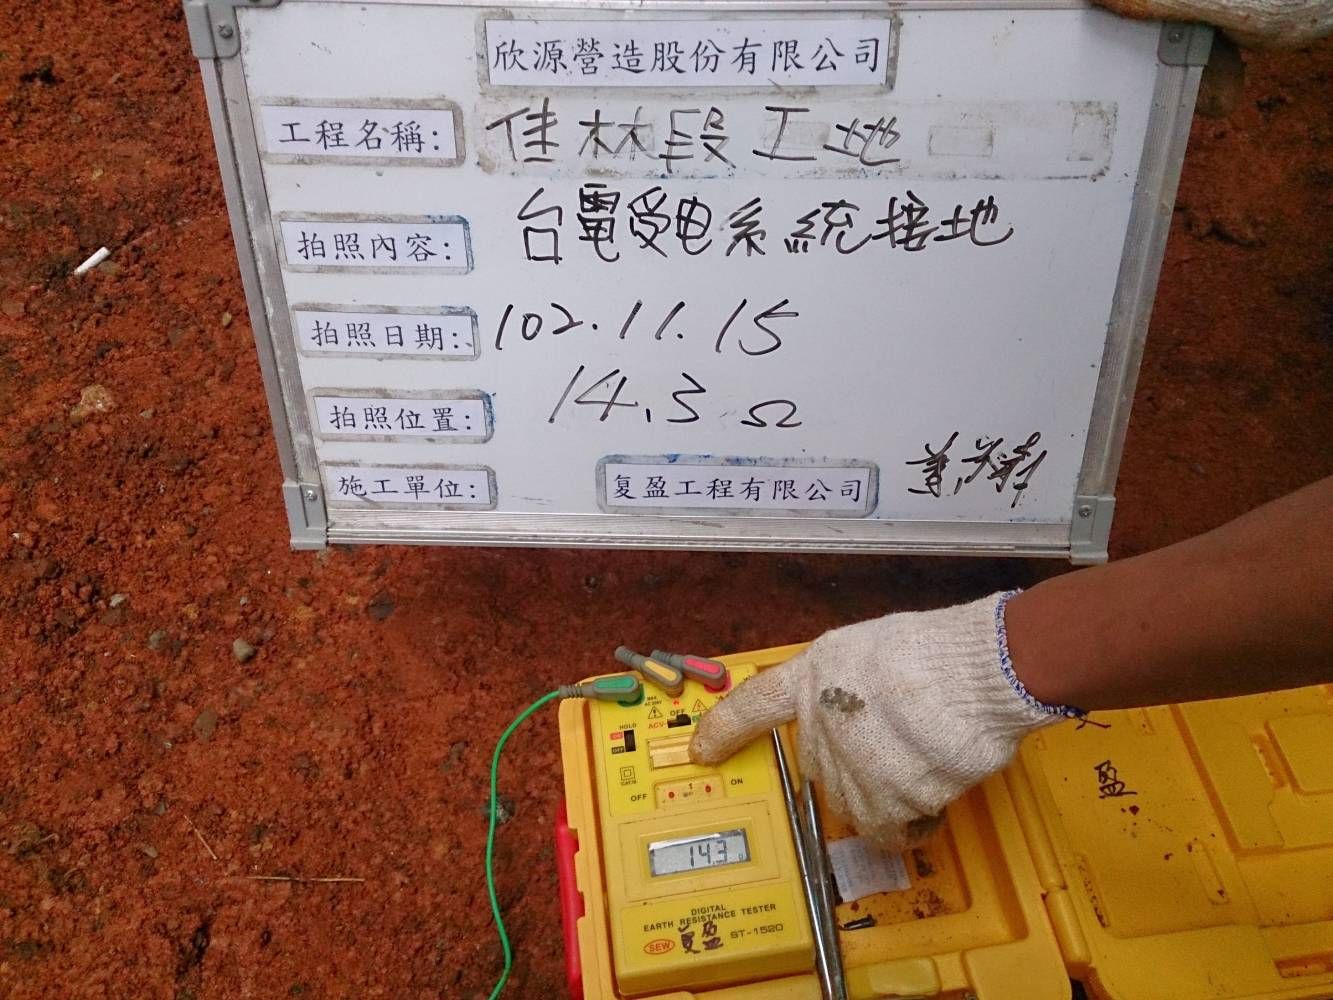 欣源營造股份有限公司
工程名稱: 佳林段工地
拍照內容: 台電受电系統接地
拍照日期: 102.11.15
拍照位置: 14.3 Ω
施工單位: 复盈工程有限公司
HOLD
OFF
ACV
OFF
ON
14.3
DIGITAL
EARTH RESISTANCE TESTER
SEW 复盈 ST-1520
盈